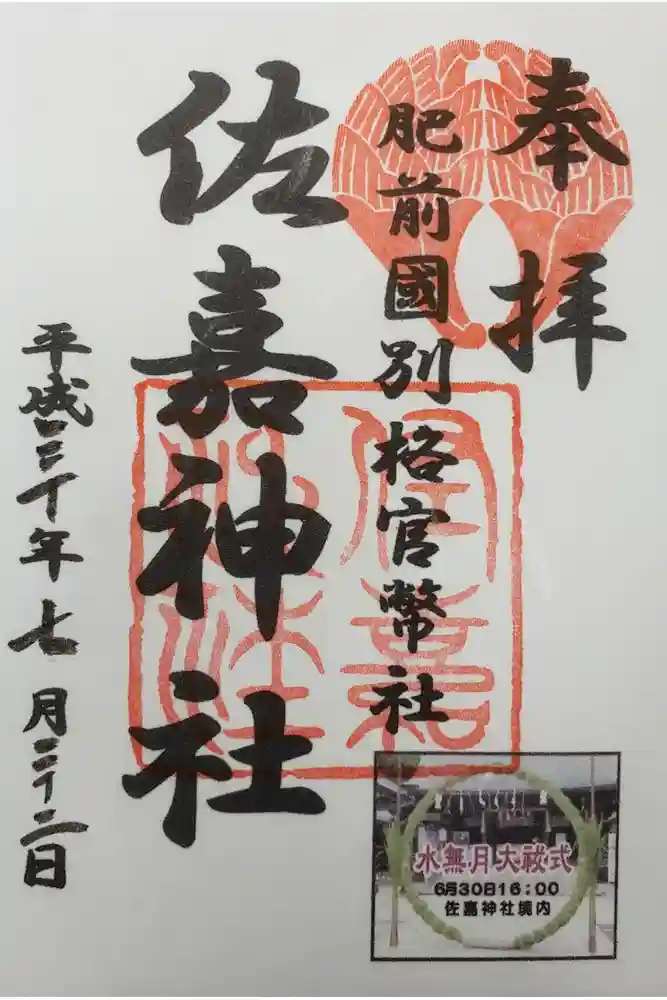 奉拝
肥前國別格官幣社
佐嘉神社
平成三十年七月二十二日
佐嘉
神社
水無月大祓式
6月30日16：00
佐嘉神社境内